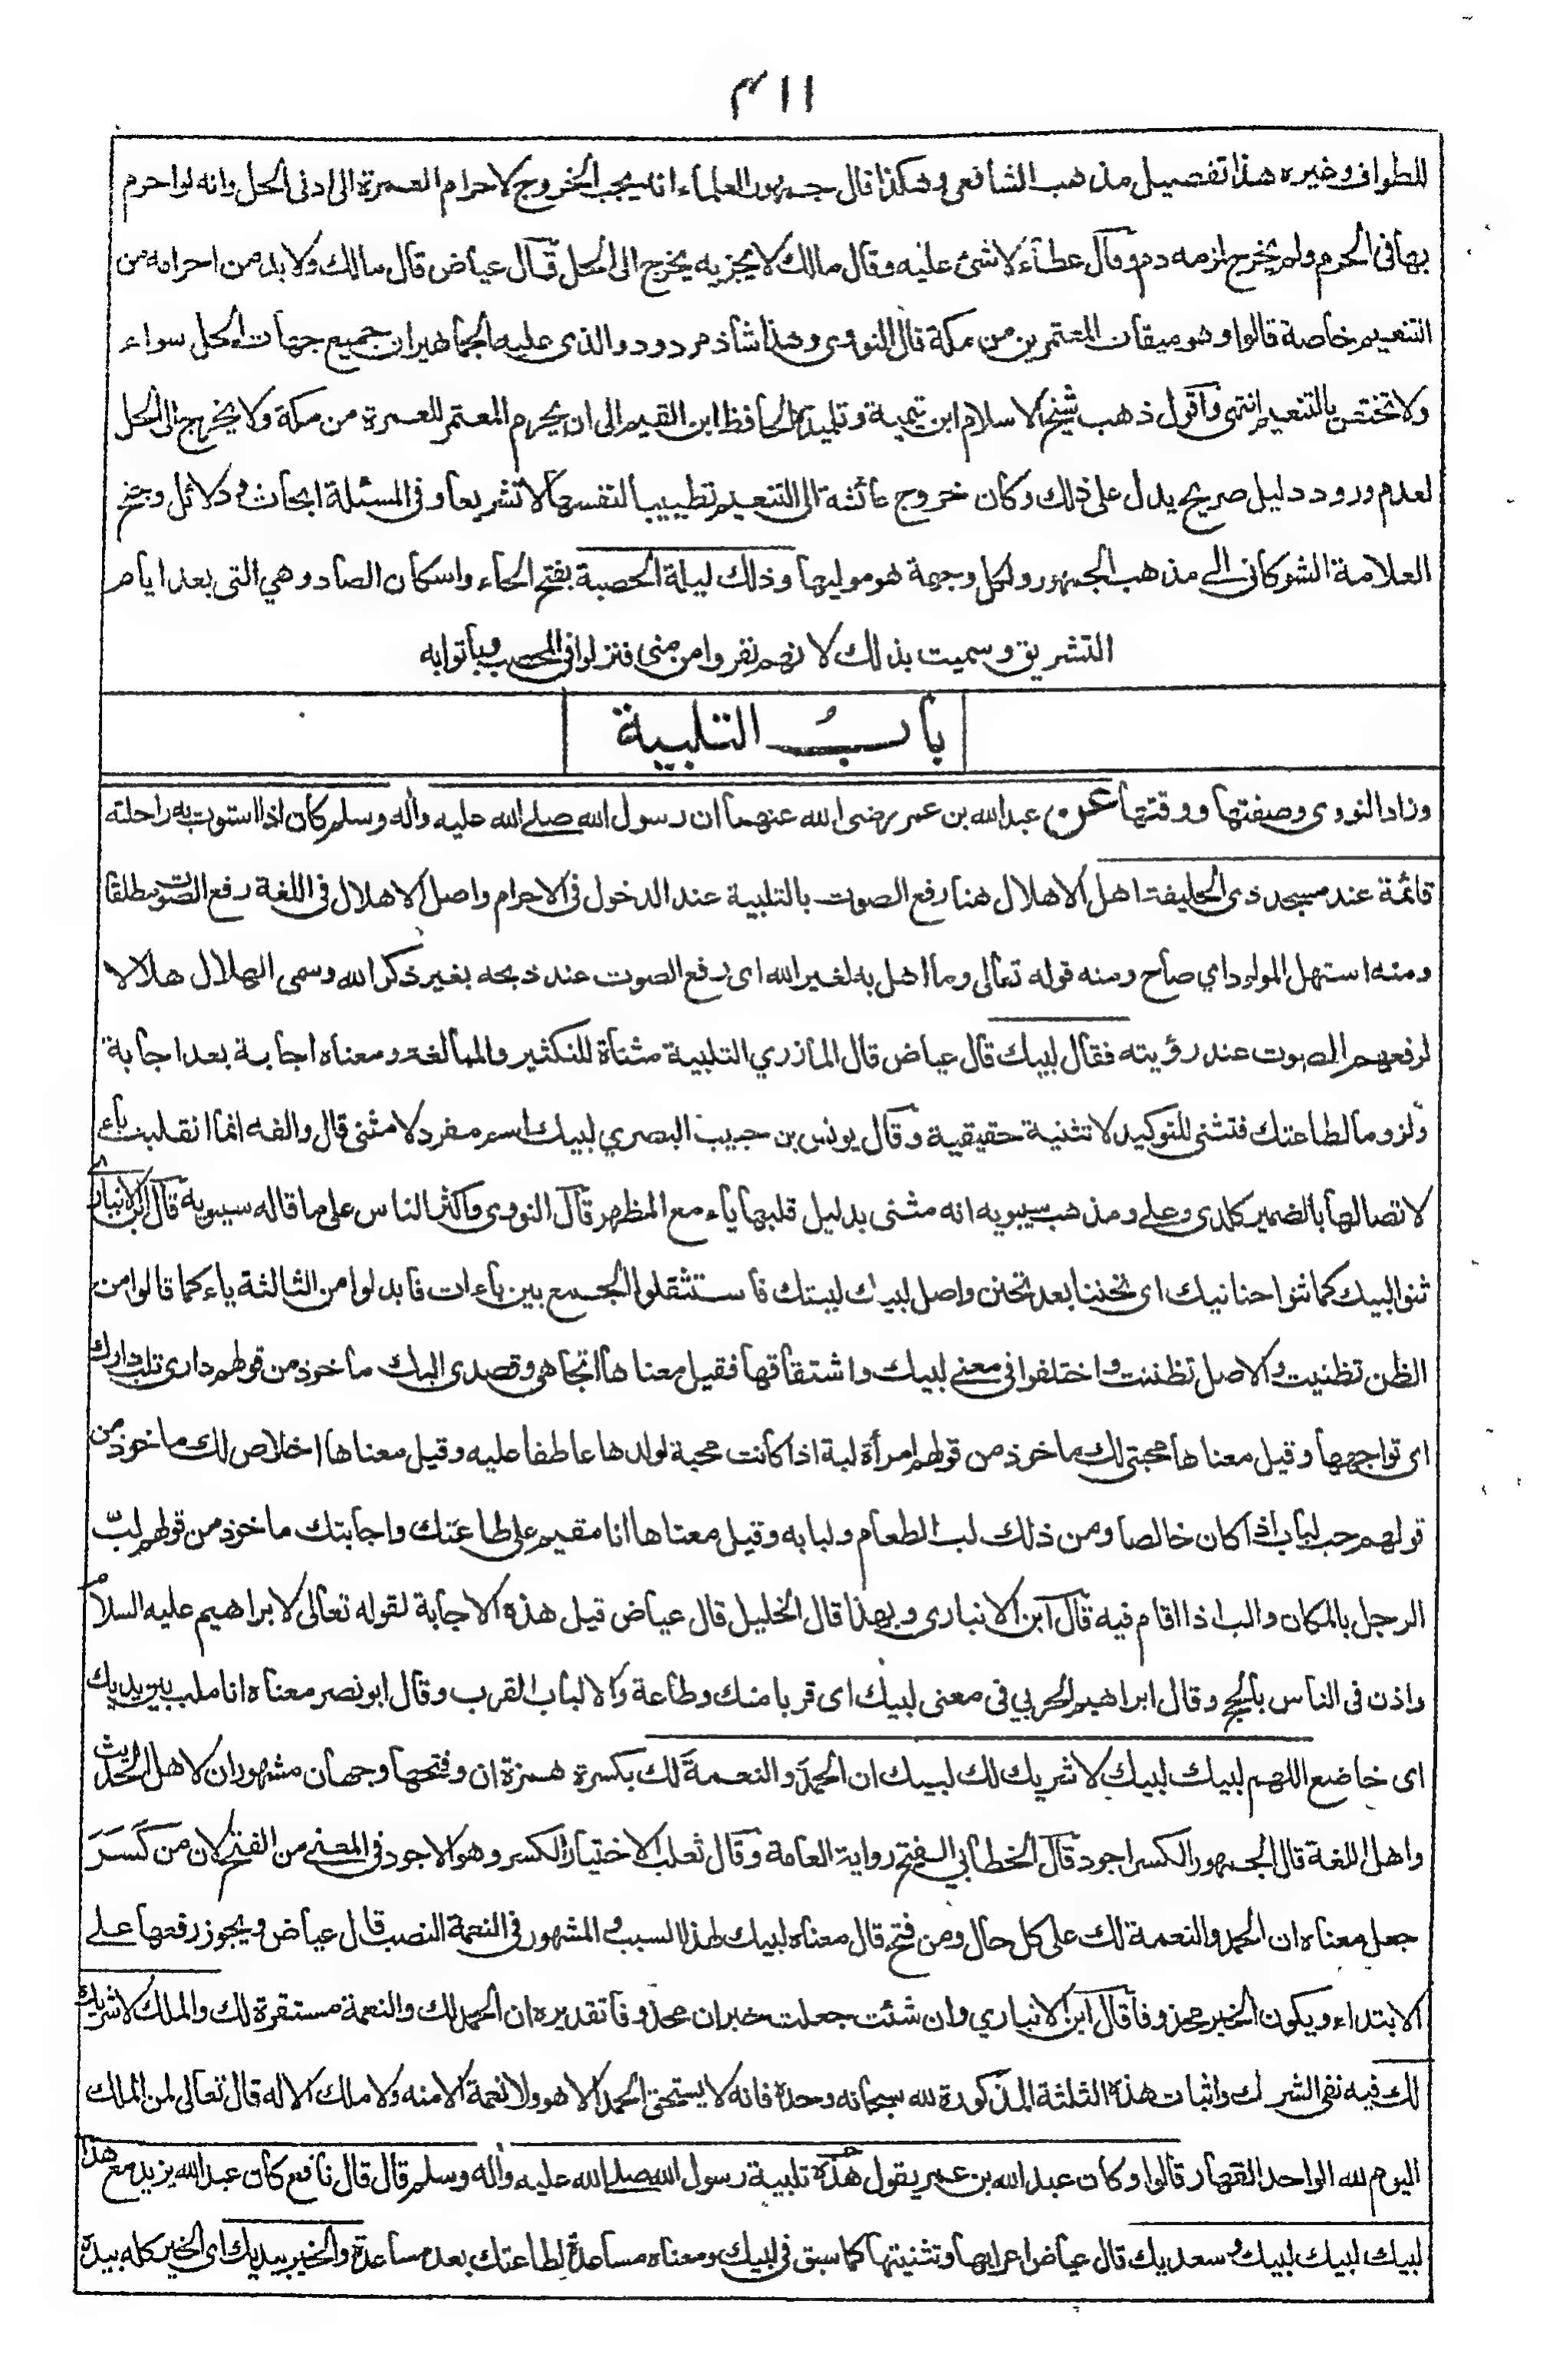 ٣١١
للطواف وغيره هذا تفصيل مذهب الشافعى وهكذا قال جمهور العلماء انه يجب الخروج لاحرام العمرة الى ادنى الحل وانه لو احرم
بها فى الحرم ولم يخرج لزمه دم وقال عطاء لا شئ عليه وقال مالك لا يجزيه يخرج الى الحل قال عياض قال مالك ولا بد من احرامه من
التنعيم خاصة قالوا وهو ميقات المعتمرين من مكة قال النووى وهذا شاذ مردود والذى عليه الجماهير ان جميع جهات الحل سواء
ولا تختص بالتنعيم انتهى وأقول ذهب شيخ الاسلام ابن تيمية وتلميذه الحافظ ابن القيم الى ان يحرم المعتمر للعمرة من مكة ولا يخرج الى الحل
لعدم ورود دليل صريح يدل على ذلك وكان خروج عائشة الى التنعيم تطييبا لنفسها لا تشريعا وفى المسئلة ابحاث ودلائل وجنح
العلامة الشوكانى الى مذهب الجمهور ولكل وجهة هو موليها وذلك ليلة الحصبة بفتح الحاء واسكان الصاد وهي التى بعد ايام
التشريق وسميت بذلك لانهم نفروا من منى فنزلوا فى المحصب وباتوا به
بابُ التلبية
وزاد النووى وصفتها ووقتها عن عبد الله بن عمر رضى الله عنهما ان رسول الله صلى الله عليه وأله وسلم كان اذا استوت به راحلته
قائمة عند مسجد ذى الحليفة اهل الاهلال هنا رفع الصوت بالتلبية عند الدخول فى الاحرام واصل الاهلال فى اللغة رفع الصوت مطلقا
ومنه استهل المولود اي صاح ومنه قوله تعالى وما اهل به لغير الله اى رفع الصوت عند ذبحه بغير ذكر الله وسمى الهلال هلالا
لرفعهم الصوت عند رؤيته فقال لبيك قال عياض قال المازري التلبية مثناة للتكثير والمبالغة ومعناه اجابة بعد اجابة
ولزوما لطاعتك فتثنى للتوكيد لا تثنية حقيقية وقال يونس بن حبيب البصري لبيك اسم مفرد لا مثنى قال والفه انما انقلبت ياء
لاتصالها بالضمير كلدى وعلى ومذهب سيبويه انه مثنى بدليل قلبها ياء مع المظهر قال النووى واكثر الناس على ما قاله سيبويه قال ابن الانبارى
ثنوا لبيك كما ثنوا حنانيك اى تحننا بعد تحنن واصل لبيك لببتك فاستثقلوا الجمع بين باءات فابدلوا من الثالثة ياء كما قالوا من
الظن تظنيت والاصل تظننت واختلفوا فى معنى لبيك واشتقاقها فقيل معناها اتجاهى وقصدى اليك ماخوذ من قولهم دارى تلب دارك
اى تواجهها وقيل معناها محبتى لك ماخوذ من قولهم امرأة لبة اذا كانت محبة لولدها عاطفا عليه وقيل معناها اخلاص لك ماخوذ من
قولهم حب لباب اذا كان خالصا ومن ذلك لب الطعام ولبابه وقيل معناها انا مقيم على طاعتك واجابتك ماخوذ من قولهم لبّ
الرجل بالمكان والب اذا اقام فيه قال ابن الانبارى وبهذا قال الخليل قال عياض قيل هذه الاجابة لقوله تعالى لابراهيم عليه السلام
واذن فى الناس بالحج وقال ابراهيم الحربي فى معنى لبيك اى قربا منك وطاعة والالباب القرب وقال ابو نصر معناه انا ملب بين يديك
اى خاضع اللهم لبيك لبيك لا شريك لك لبيك ان الحمدَ والنعمةَ لك بكسرة همزة ان وفتحها وجهان مشهوران لاهل الحديث
واهل اللغة قال الجمهور الكسر اجود قال الخطابي الفتح رواية العامة وقال ثعلب الاختيار الكسر وهو الاجود فى المعنى من الفتح لان من كَسَرَ
جعل معناه ان الحمد والنعمة لك على كل حال ومن فتح قال معناه لبيك لهذا السبب والمشهور فى النعمة النصب قال عياض ويجوز رفعها على
الابتداء ويكون الخبر محذوفا قال ابن الانباري وان شئت جعلت خبر ان محذوفا تقديره ان الحمد لك والنعمة مستقرة لك والملك لا شريك
لك فيه نفى الشرك واثبات هذه الثلثة المذكورة لله سبحانه وحده فانه لا يستحق الحمد الا هو ولا نعمة الا منه ولا ملك الا له قال تعالى لمن الملك
اليوم لله الواحد القهار قالوا وكان عبد الله بن عمر يقول هذه تلبية رسول الله صلى الله عليه وأله وسلم قال قال نافع كان عبد الله يزيد مع هذا
لبيك لبيك لبيك وسعديك قال عياض اعرابها وتثنيتها كما سبق فى لبيك ومعناه مساعدة لطاعتك بعد مساعدة والخير بيديك اى الخير كله بيده